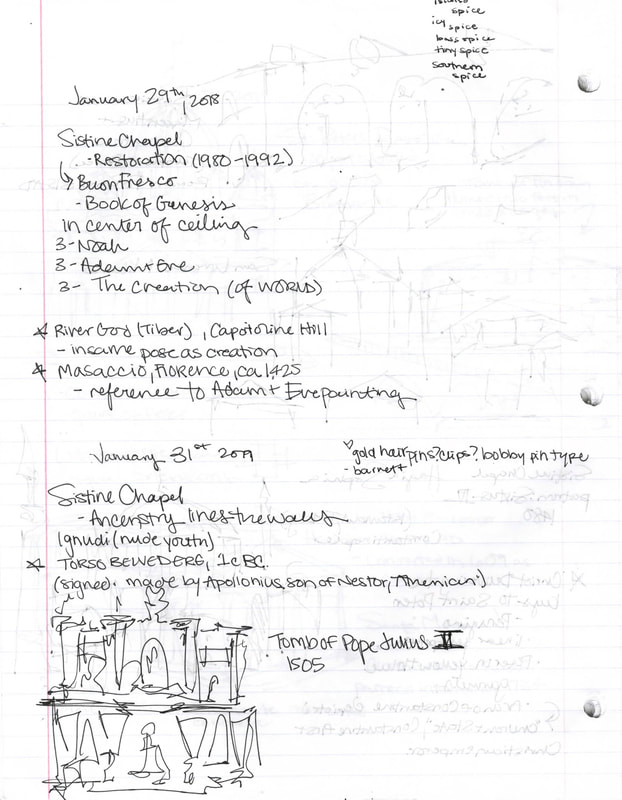 spice
icy spice
bass spice
tiny spice
southern
spice
January 29th, 2018
Sistine Chapel
- Restoration (1980-1992)
Buon Fresco
- Book of Genesis
in center of ceiling
3- Noah
3- Adam + Eve
3- The Creation (of WORLD)
River God (Tiber), Capotoline Hill
- in same pose as creation
Masaccio, Florence, ca 1425
- reference to Adam + Eve painting
January 31st
♡gold hair pins? clips? bobby pin type
- barrett
Sistine Chapel
- Ancenstry lines the walls
Ignudi (nude youth)
TORSO BELVEDERE, 1c BC.
(signed. made by Apollonius, son of Nestor,
Tomb of Pope Julius II
1505